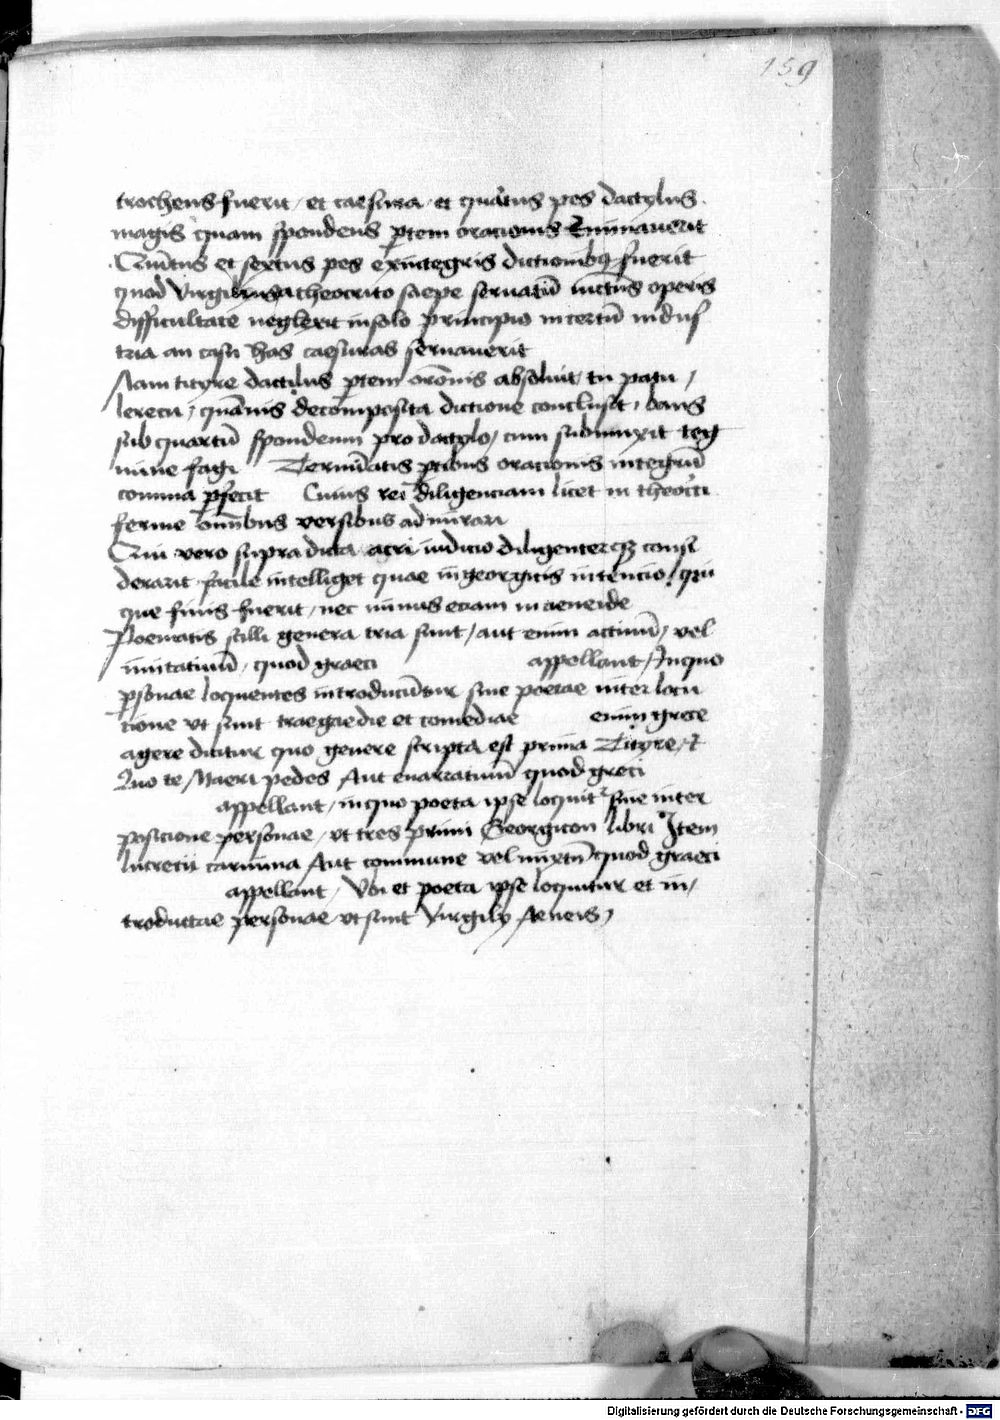 159
trocheus fuerit / et caesura / et quartus pes dactylus
magis quam spondeus ptem orationis
Quītus et sextus pes ex integris dictionibꝫ fuerit
quod Virgilius a theocrito saepe seruatū operis
difficultate neglexit in solo principio incertū indus
tria an casu has caesuras seruauerit
Nam tityre dactilus ptem orōnis absoluit / tu patu /
lerecu / quāuis decomposita dictione conclusit /
sub quartū spondeum pro dactylo / cum subiunxit teg
mine fagi Termīatis ptibus orationis integrū
comma pfecit Cuius rei diligenciam licet in theocri
ferme omībus versibus admirari
Qui vero supra dicta acri iudicio diligenterqꝫ consi
derarit facile intelliget quae in georgicis intencio / qui
que finis fuerit / nec minus eciam in aeneide
Poematis stilli genera tria sunt / aut enim actiuū / vel
imitatiuū / quod graeci appellant / In quo
psonae loquentes introducūtur sine poetae inter locu
tione vt sunt traegaedie et comediae enim grece
agere dicitur quo genere scripta est prima Tityre / et
Quo te / Maeri pedes Aut enarratiuū quod greci
appellant / in quo poeta ipse loquit sine inter
posicione personae / vt tres primi Georgicon libri Item
lucretii carmina Aut commune vel mixtū quod graeci
appellant / Vbi et poeta ipse loquitur et in /
troductae personae vt sunt Virgilij Aeneis /
Digitalisierung gefördert durch die Deutsche Forschungsgemeinschaft - DFG